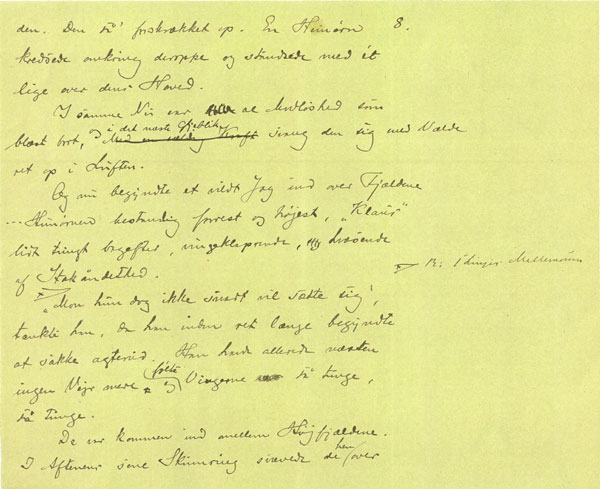 den. Den så' forskrækket op. En Hunørn 8.
kredsede omkring deroppe og standsede med ét
lige over dens Hoved.
I samme Nu var al Modløshed som
i det næste Øjeblik
blæst bort, Med en vældig Kraft svang den sig med Vælde
ret op i Luften.
Og nu begyndte et vildt Jag ind over Fjældene
--- Hunørnen bestandig forrest og højest, „Klaus"
lidt tungt bagefter, vingeklaprende, hvæsende
af Stakåndethed.
B: 1 Linjes Mellemrum
„Mon hun dog ikke snart vil sætte sig',
tænkte han, da han inden ret længe begyndte
at sakke agterud. Han havde allerede næsten
følte
ingen Vejr mere og Vingerne så tunge,
så tunge.
De var kommen ind mellem Højfjældene.
hen
I Aftenens sene Skumring svævede de over